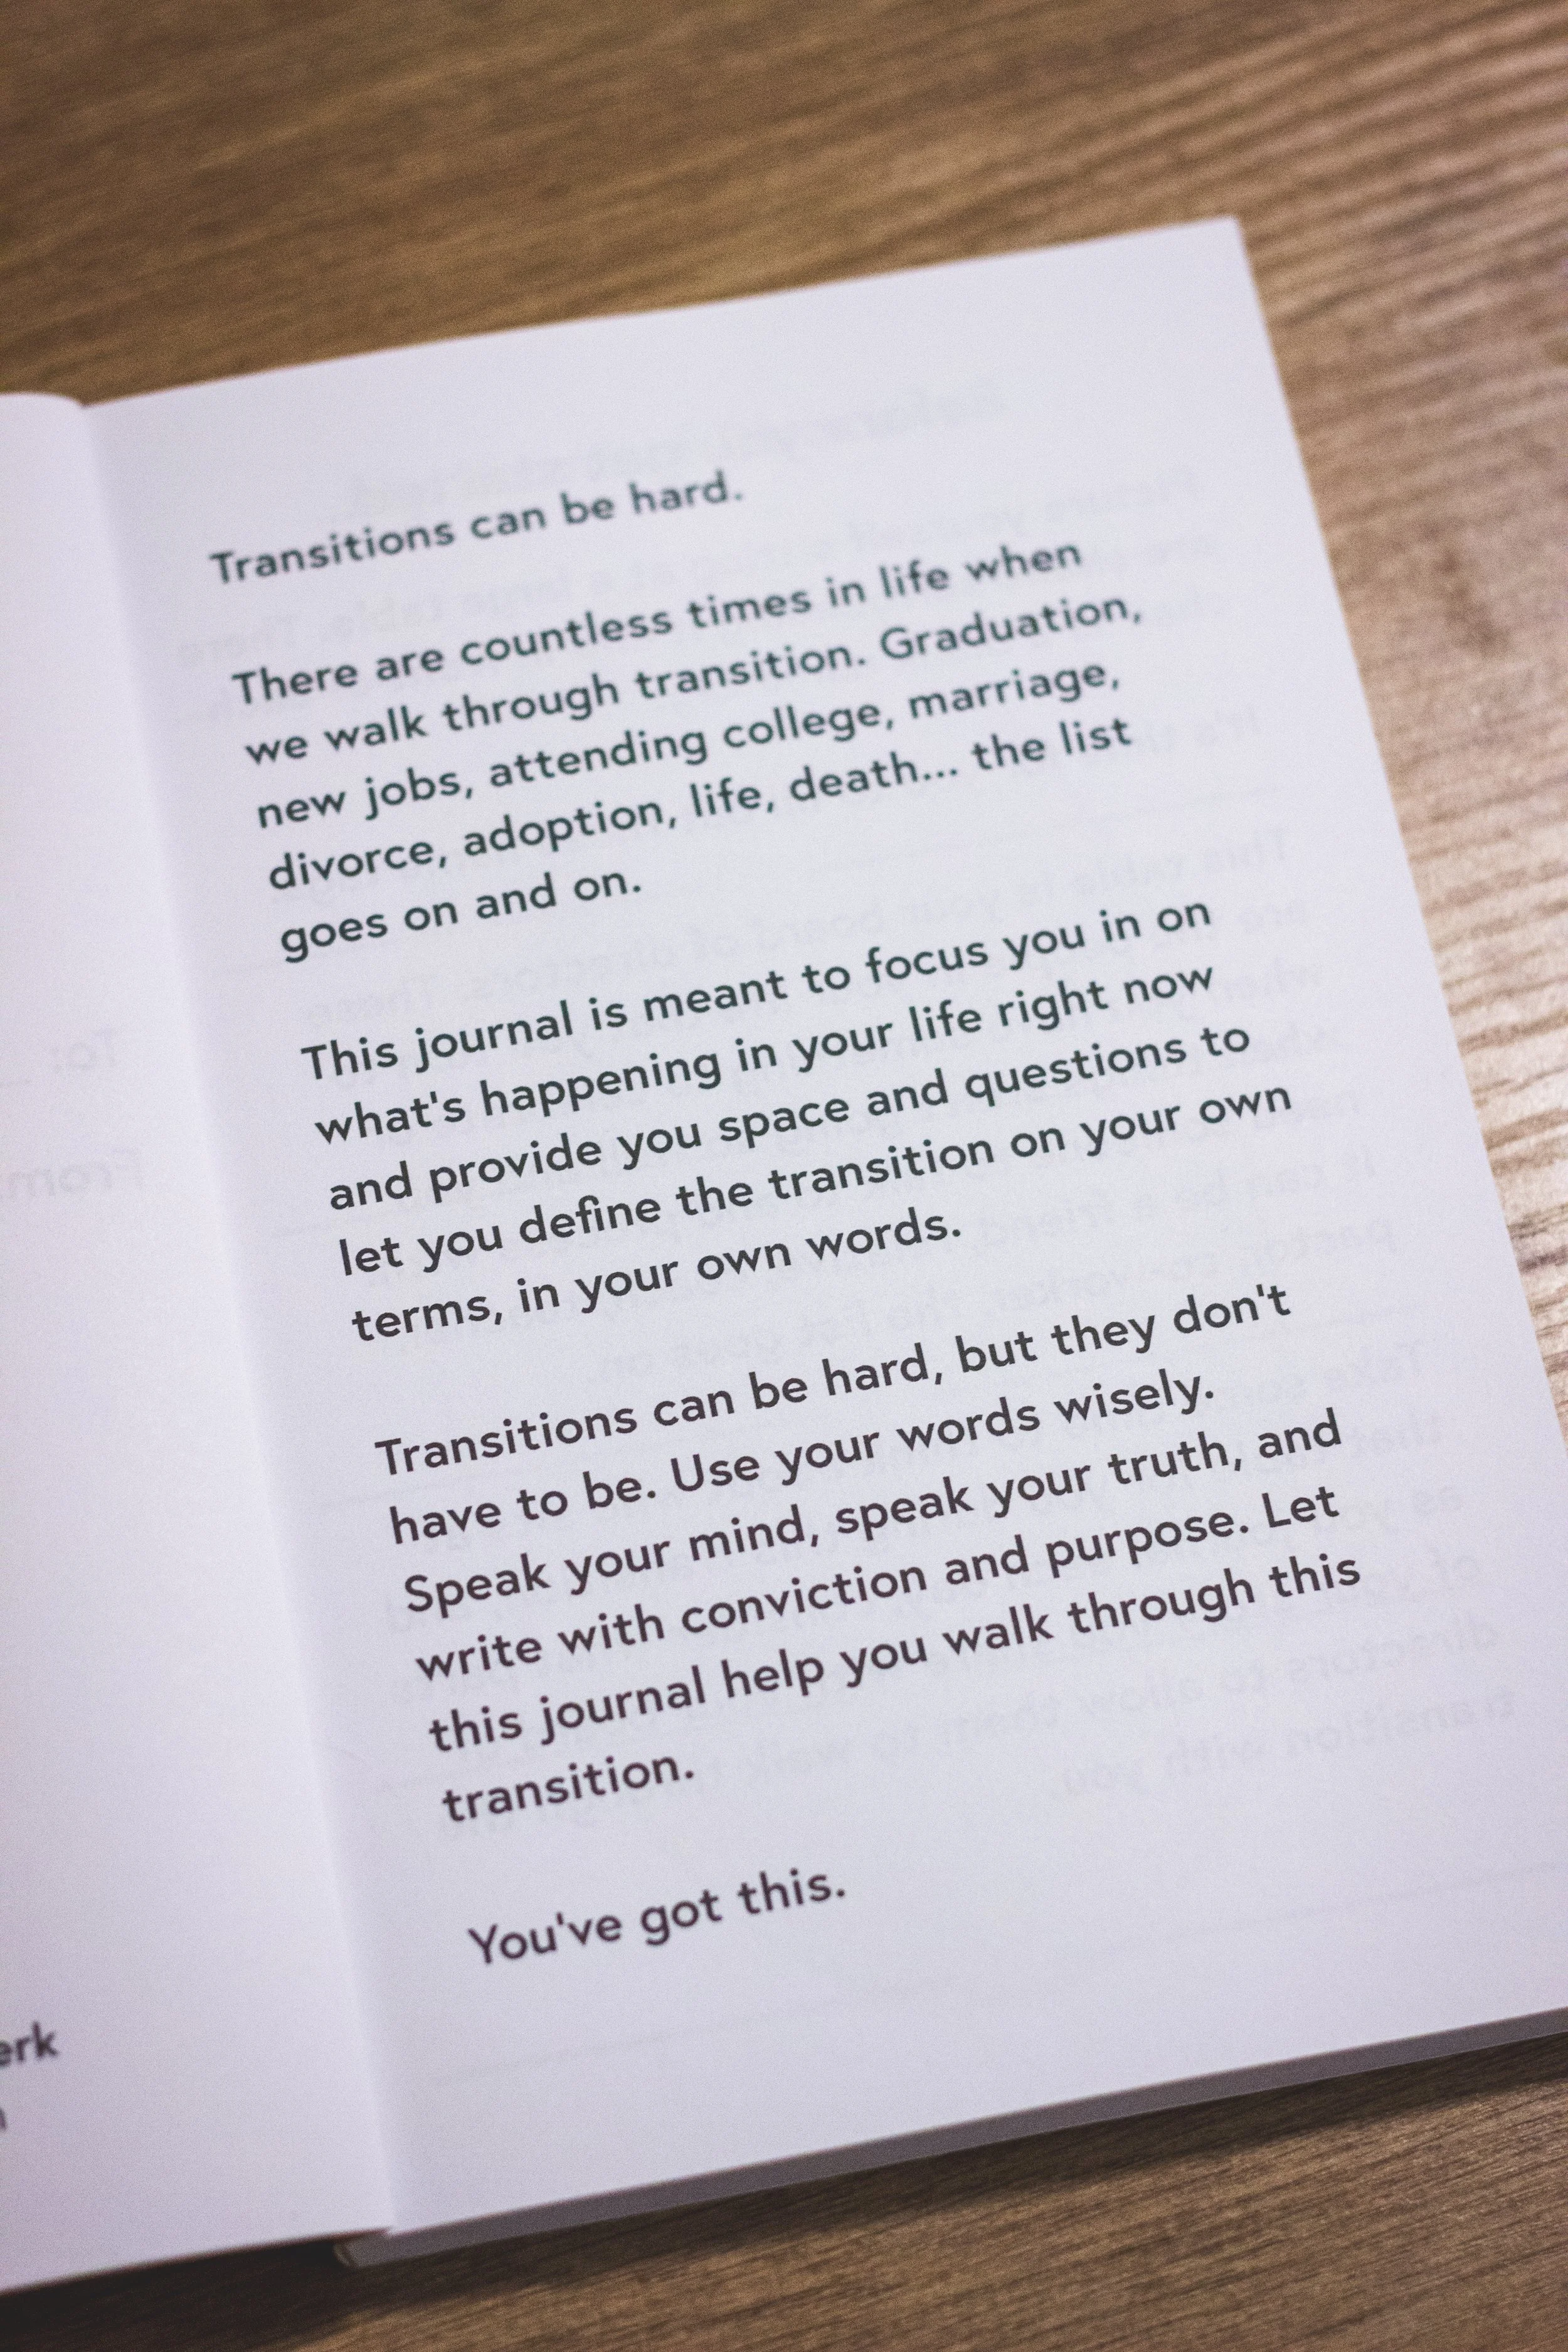 Transitions can be hard.
There are countless times in life when
we walk through transition. Graduation,
new jobs, attending college, marriage,
divorce, adoption, life, death... the list
goes on and on.
This journal is meant to focus you in on
what's happening in your life right now
and provide you space and questions to
let you define the transition on your own
terms, in your own words.
Transitions can be hard, but they don't
have to be. Use your words wisely.
Speak your mind, speak your truth, and
write with conviction and purpose. Let
this journal help you walk through this
transition.
You've got this.